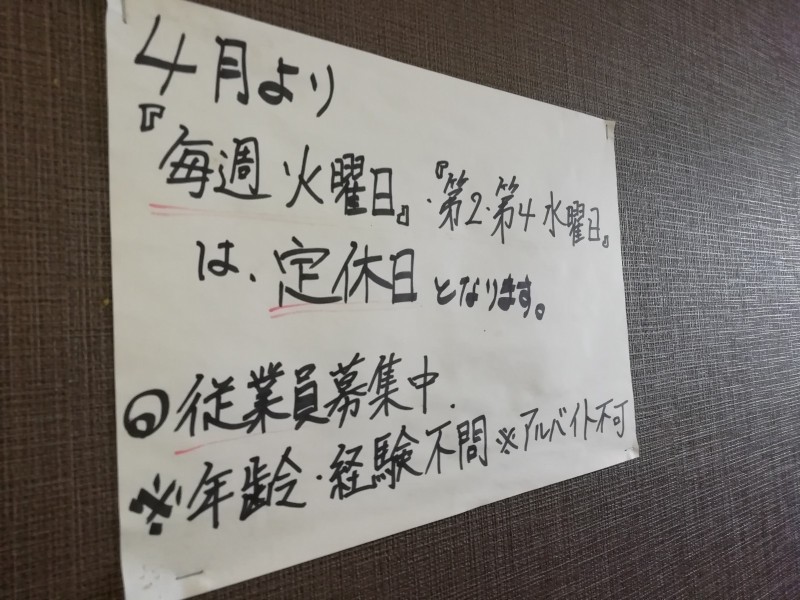 4月より
『毎週 火曜日』・『第2・第4 水曜日』
は、定休日となります。
◎従業員募集中.
※年齢・経験不問 ※アルバイト不可